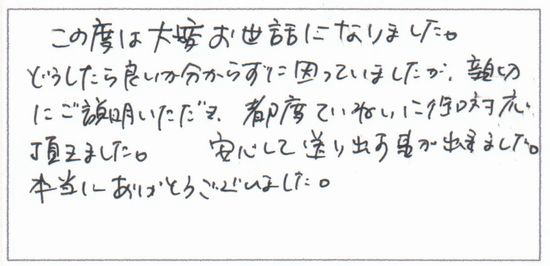 この度は大変お世話になりました。
どうしたら良いか分からずに困っていましたが、親切
にご説明いただき、都度ていねいに御対応
頂きました。 安心して送り出す事が出来ました。
本当にありがとうございました。